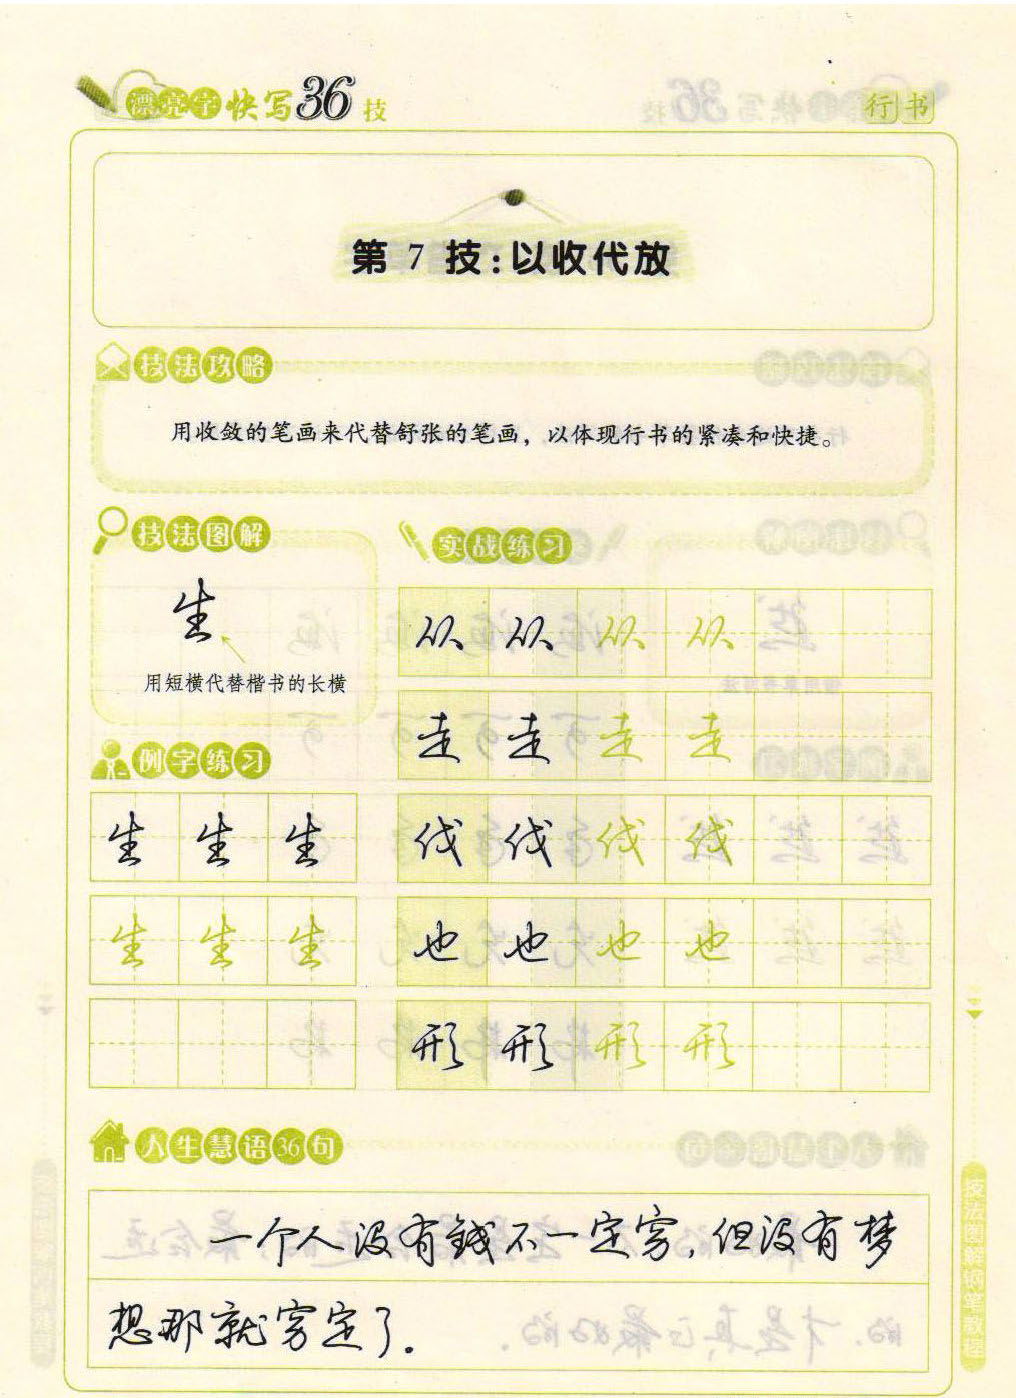 漂亮字快写36技
行书
第7技:以收代放
技法攻略
用收敛的笔画来代替舒张的笔画，以体现行书的紧凑和快捷。
技法图解
生
用短横代替楷书的长横
例字练习
生 生 生
生 生 生
实战练习
从 从 从 从
走 走 走 走
伐 伐 伐 伐
也 也 也 也
形 形 形 形
人生慧语36句
一个人没有錢不一定穷,但没有梦
想那就穷定了.
技法图解钢笔教程